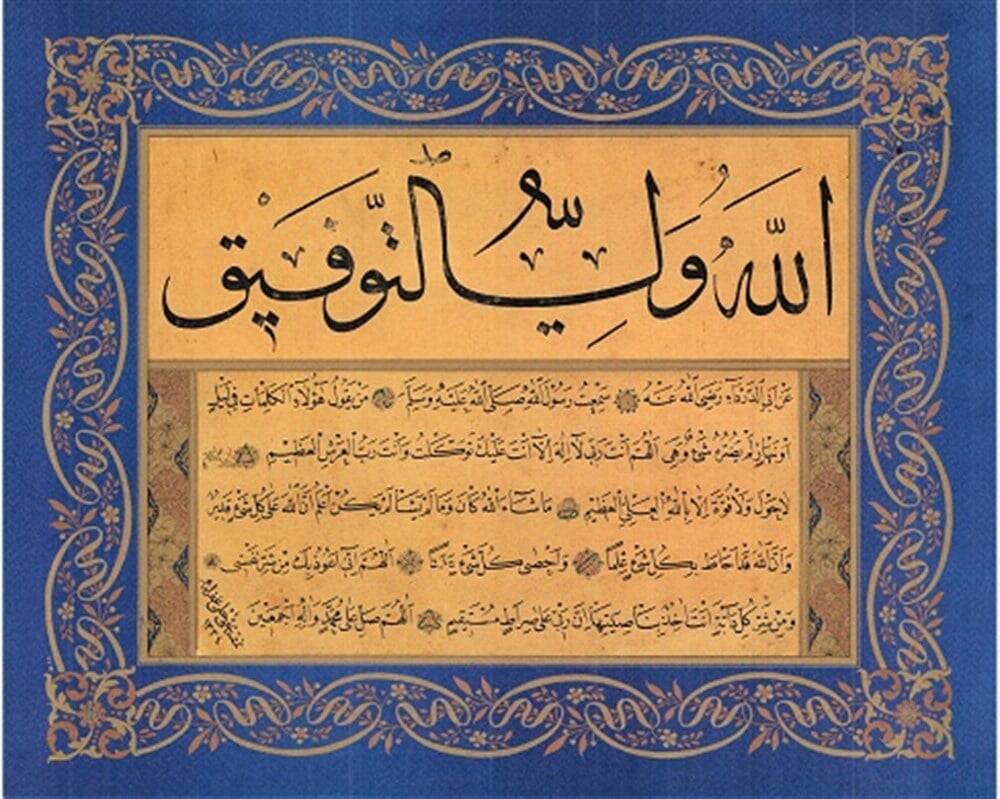 اللهُ وَلِيُّ التَّوْفِيقِ
عن ابى الدرداء رضى الله عنه سمعت رسول الله صلى الله عليه وسلم من يقول هؤلاء الكلمات فى ليل
او نهار لم يضره شئ وهى اللهم انت ربى لا اله الا انت عليك توكلت وانت رب العرش العظيم
لا حول ولا قوة الا بالله العلى العظيم ما شاء الله كان وما لم يشأ لم يكن اعلم ان الله على كل شئ قدير
وان الله قد احاط بكل شئ علما واحصى كل شئ عددا اللهم انى اعوذ بك من شر نفسى
ومن شر كل دابة انت اخذ بناصيتها ان ربى على صراط مستقيم اللهم صل على محمد واله اجمعين